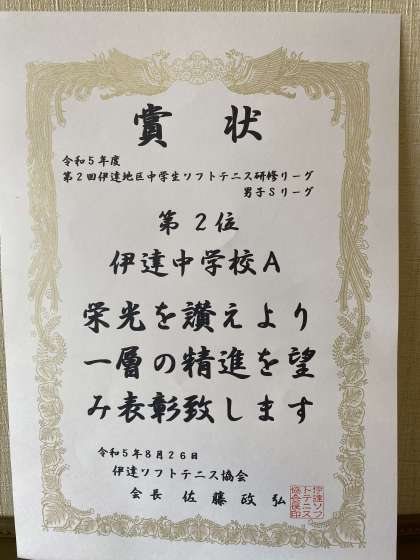 賞状
令和5年度
第2回伊達地区中学生ソフトテニス研修リーグ
男子Sリーグ
第2位
伊達中学校A
栄光を讃えより
一層の精進を望
み表彰致します
令和5年8月26日
伊達ソフトテニス協会
会長 佐藤政弘
伊達ソフ
トテニス
協会長印